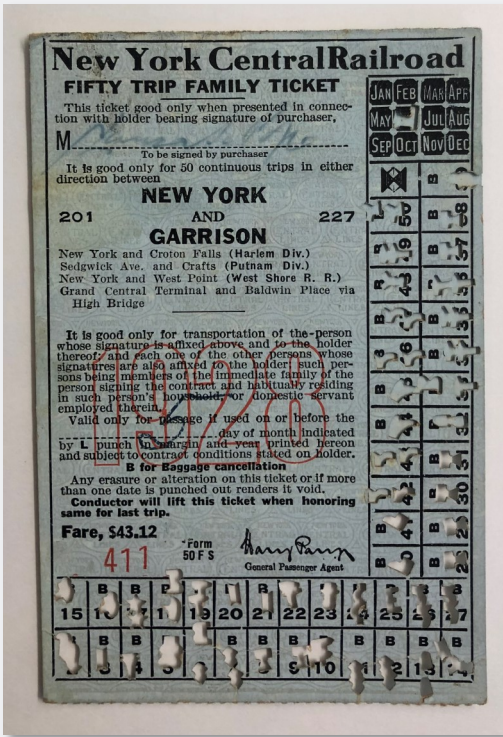 New York Central Railroad
FIFTY TRIP FAMILY TICKET
This ticket good only when presented in connec-
tion with holder bearing signature of purchaser,
M
To be signed by purchaser
It is good only for 50 continuous trips in either
direction between
NEW YORK
201 AND 227
GARRISON
New York and Croton Falls (Harlem Div.)
Sedgwick Ave. and Crafts (Putnam Div.)
New York and West Point (West Shore R. R.)
Grand Central Terminal and Baldwin Place via
High Bridge
It is good only for transportation of the person
whose signature is affixed above and to the holder
thereof; and each one of the other persons whose
signatures are also affixed to the holder, such per-
sons being members of the immediate family of the
person signing the contract and habitually residing
in such person's household, domestic servant
employed therein.
Valid only for passage if used on or before the
day of month indicated
by L punch in margin and year printed hereon
and subject to contract conditions stated on holder.
1928
B for Baggage cancellation
Any erasure or alteration on this ticket or if more
than one date is punched out renders it void.
Conductor will lift this ticket when honoring
same for last trip.
Fare, $43.12
411
Form
50 F S
General Passenger Agent
JAN FEB MAR APR
MAY JUL AUG
SEP OCT NOV DEC
B
B 50 B 38
B 49 B 37
B
B
B
B
B
B
B 31
B 30
B
B
B B B B B B B B B B
15 17 18 19 20 21 22 23 24 25 26 27
B B B B B B B B
3 4 5 9 10 12 13 14